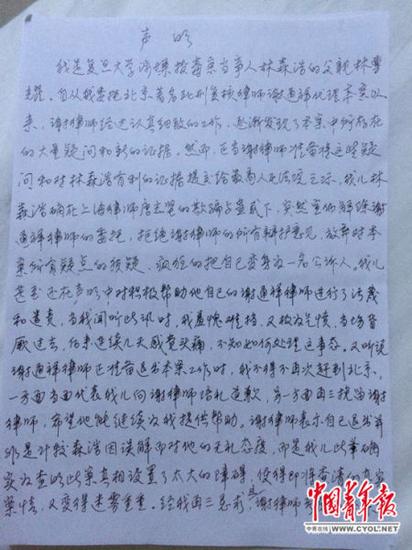 声明
我是复旦大学涉嫌投毒案当事人林森浩的父亲林尊
耀。自从我委托北京著名死刑复核律师谢通祥代理本案以
来，谢律师经过认真细致的工作，逐渐发现了本案中所存在
的大量疑问和新的证据。然而，正当谢律师准备将这些疑
问和对林森浩有利的证据提交给最高人民法院之际，我儿林
森浩确在上海律师唐志坚的欺骗与蛊惑下，突然宣布解除谢
通祥律师的委托，拒绝谢律师的所有辩护意见，放弃对本
案所有疑点的质疑，疯狂的把自己变身为一名公诉人，我儿
甚至还在声明中对积极帮助他自己的谢通祥律师进行了污蔑
和谴责，当我闻听此讯时，我羞愧难挡，又极为气愤，当场昏
厥过去，后来连续几天感觉头痛，不知如何处理这事态。又听说
谢通祥律师正准备退出本案工作时，我不得不再次赶到北京，
一方面当面代表我儿向谢律师赔礼道歉，另一方面再三挽留谢
律师，希望他能继续为我提供帮助。谢律师表示自己退出并
非是计较森浩因误解而对他的无礼态度，而是我儿此举确
实为查明此案真相设置了太大的障碍，使得即将查清的真实
案情，又变得迷雾重重。经我再三恳求，谢律师
中国青年报
中青在线